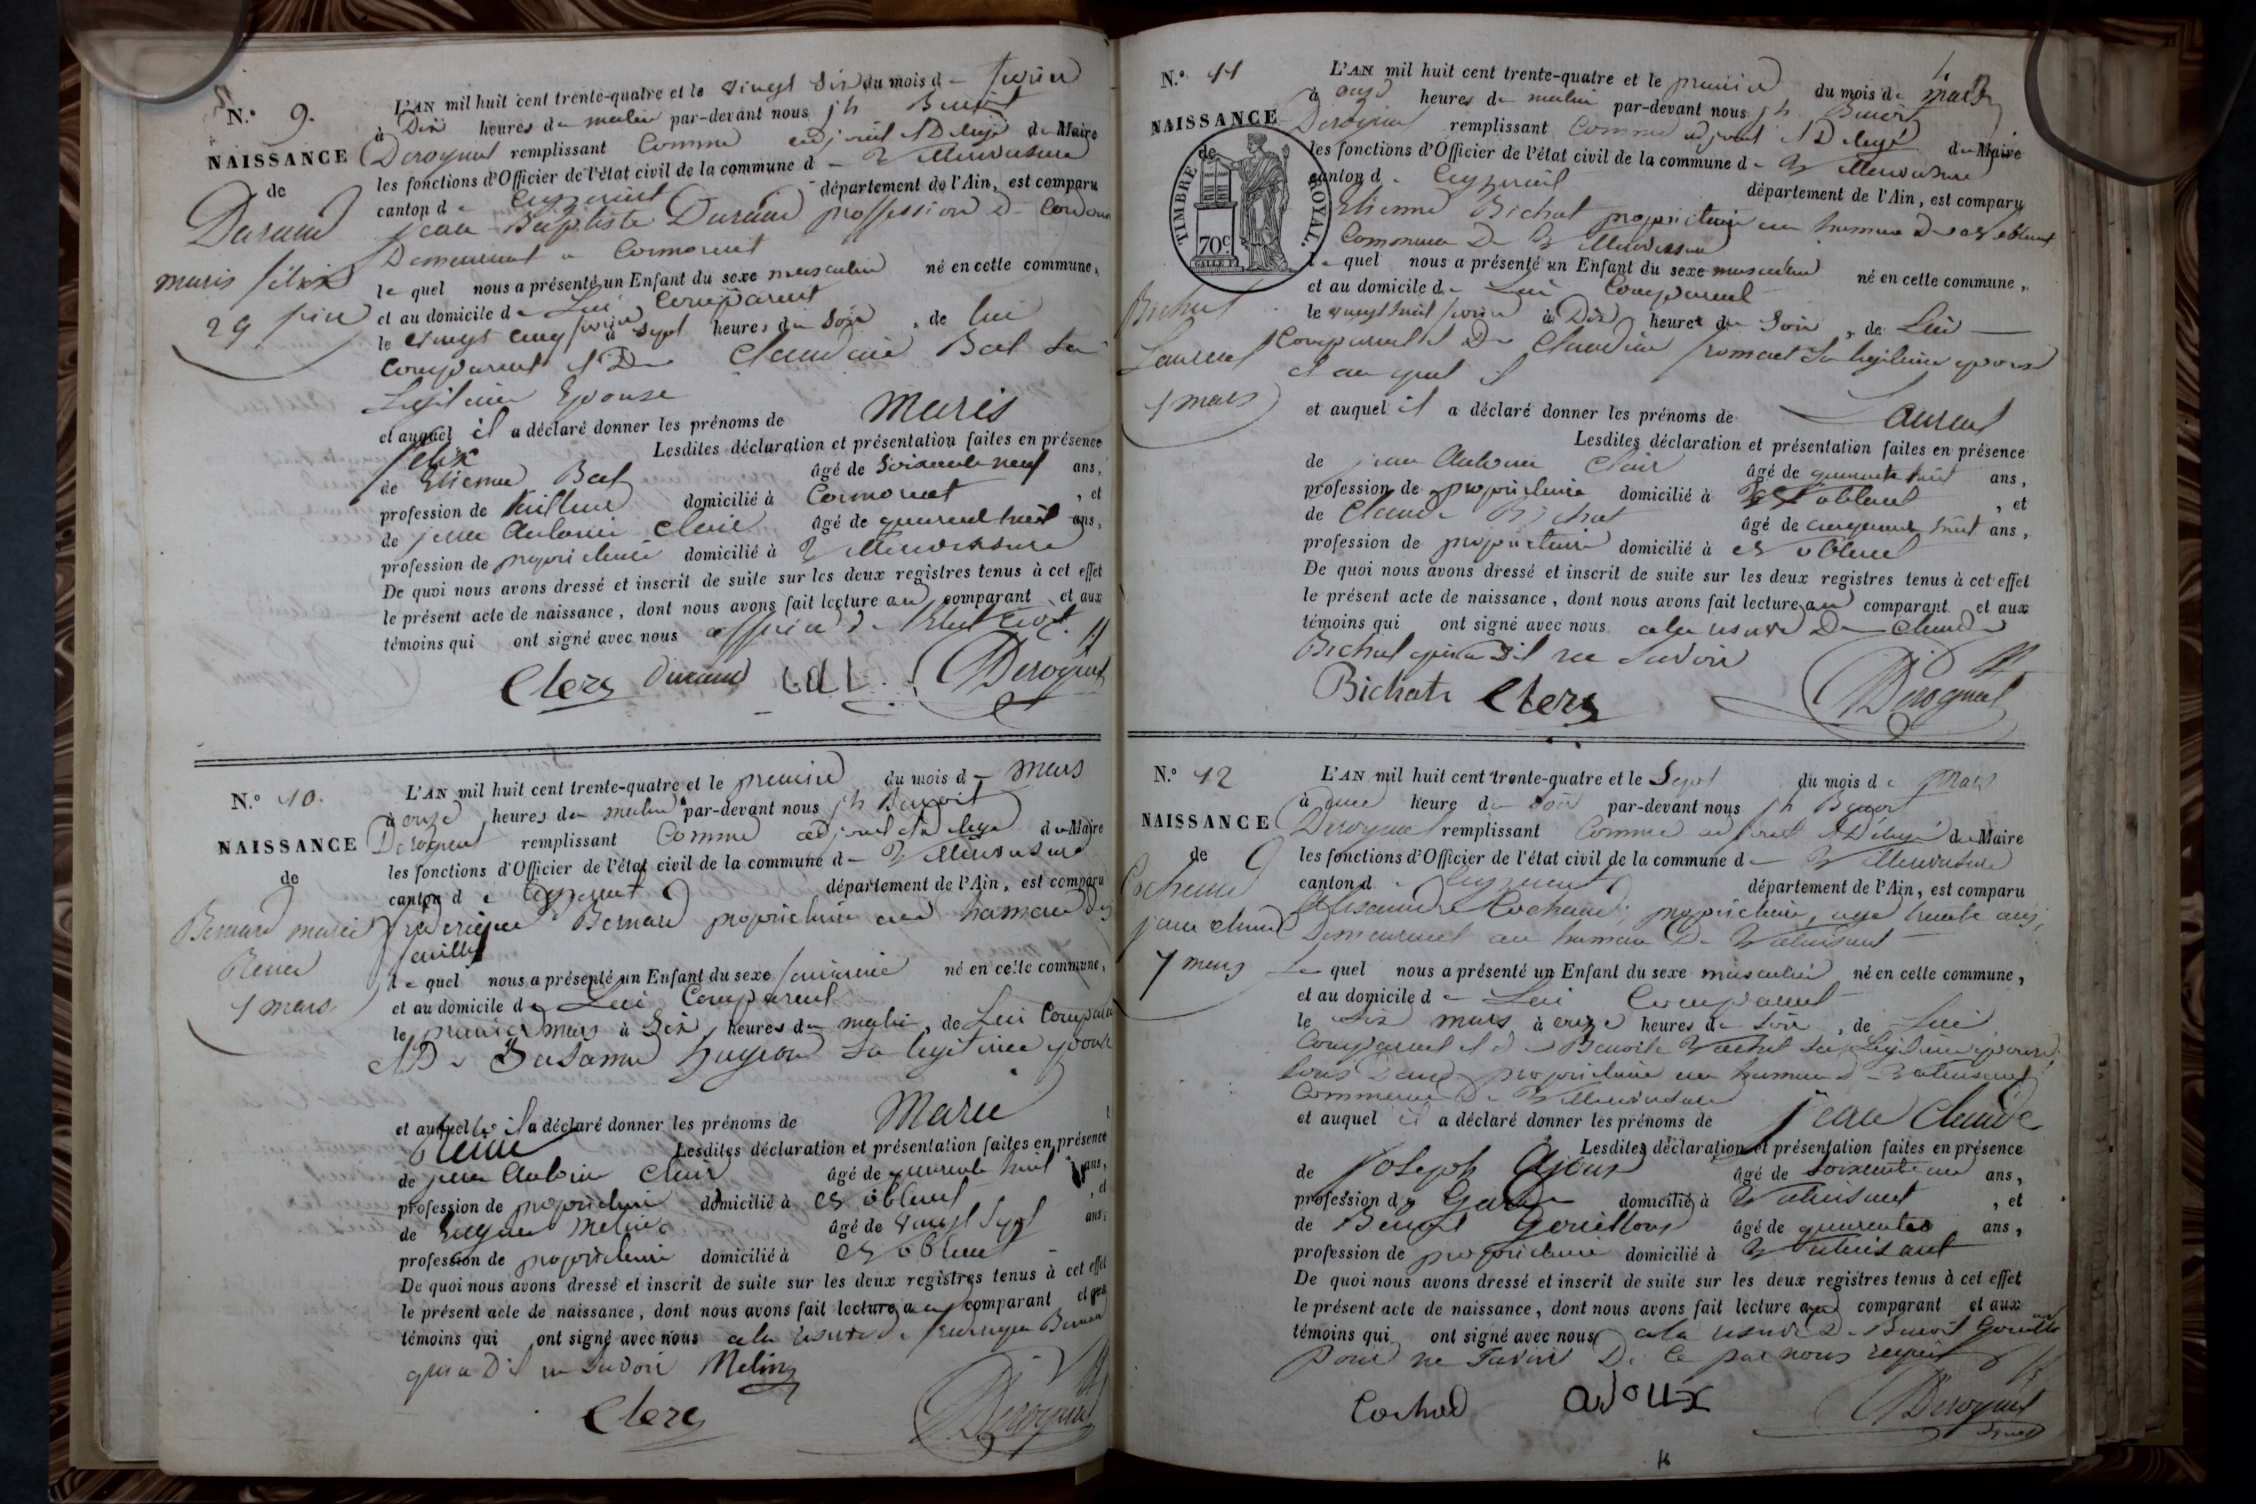 N.° 9.
NAISSANCE
de
Durand
maris félix
L'AN mil huit cent trente-quatre et le vingt six du mois d février
à Dix heures du matin par-devant nous jh Benoit
Derognat remplissant Comme adjoint et Delegé du Maire
les fonctions d'Officier de l'état civil de la commune d
canton d Ceyzeriat département de l'Ain, est comparu
jean Baptiste Durand proffession d
Demeurant a Cormorent
le quel nous a présenté un Enfant du sexe masculin né en cette commune,
et au domicile de Lui Comparent
le vingt cinq février à sept heures du soir, de lui
Comparant et De Claudine Bal sa
Legitime Epouse
et auquel il a déclaré donner les prénoms de maris
felix Lesdites déclaration et présentation faites en présence
de Etienne Bal âgé de soixante neuf ans,
profession de tailleur domicilié à Cormorent, et
de jean Antoine Clerc âgé de quarent huit ans,
profession de propriétaire domicilié à
De quoi nous avons dressé et inscrit de suite sur les deux registres tenus à cet effet
le présent acte de naissance, dont nous avons fait lecture au comparant et aux
témoins qui ont signé avec nous
Clerc Durand Derognat
N.° 10.
NAISSANCE
de
Bernard marie
Reine
1 mars
L'AN mil huit cent trente-quatre et le premier du mois d mars
à onze heures du matin par-devant nous jh Benoit
Derognat remplissant Comme adjoint et Delegé du Maire
les fonctions d'Officier de l'état civil de la commune d
canton d Ceyzeriat département de l'Ain, est comparu
frederique Bernard propriétaire au hameau des
le quel nous a présenté un Enfant du sexe féminine né en cette commune,
et au domicile de Lui Comparent
le premier mars à Six heures du matin, de Lui Comparant
et De Susanne sa legitime epouse
et auquel il a déclaré donner les prénoms de Marie
Reine Lesdites déclaration et présentation faites en présence
de jean Antoine Clerc âgé de quarante huit ans,
profession de propriétaire domicilié à, et
de Eugene Meline âgé de vingt Sept ans,
profession de propriétaire domicilié à
De quoi nous avons dressé et inscrit de suite sur les deux registres tenus à cet effet
le présent acte de naissance, dont nous avons fait lecture au comparant et aux
témoins qui ont signé avec nous a la reserve de frederique Bernard
qui a Dit ne savoir Meline
Clerc Derognat
N.° 11
NAISSANCE
de
TIMBRE ROYAL.
70c
Bichat
Laurent
1 mars
L'AN mil huit cent trente-quatre et le premier du mois de mars
à onze heures du matin par-devant nous jh Benoit
Derognat remplissant Comme adjoint et Delegé du Maire
les fonctions d'Officier de l'état civil de la commune d
canton d Ceyzeriat département de l'Ain, est comparu
Etienne Bichat propriétaire au hameau
Commune De
le quel nous a présenté un Enfant du sexe masculin né en cette commune,
et au domicile de Lui Comparent
le vingt huit février à Dix heures du Soir, de Lui
Comparant et De Claudine sa legitime epouse
et auquel il
et auquel il a déclaré donner les prénoms de Laurent
Lesdites déclaration et présentation faites en présence
de jean Antoine Clair âgé de quarante huit ans,
profession de propriétaire domicilié à, et
de Claude Bichat âgé de cinquante huit ans,
profession de propriétaire domicilié à
De quoi nous avons dressé et inscrit de suite sur les deux registres tenus à cet effet
le présent acte de naissance, dont nous avons fait lecture au comparant et aux
témoins qui ont signé avec nous a la reserve De Claude
Bichat qui a Dit ne Savoir
Bichat Clerc Derognat
N.° 12
NAISSANCE
de
Cochand
jean claude
7 mars
L'AN mil huit cent trente-quatre et le Sept du mois de Mars
à une heure du soir par-devant nous jh Benoit
Derognat remplissant Comme adjoint et Délegé du Maire
les fonctions d'Officier de l'état civil de la commune d
canton d Ceyzeriat département de l'Ain, est comparu
Cochand, propriétaire, age trente ans,
Demeurant au hameau De
Le quel nous a présenté un Enfant du sexe masculin né en cette commune,
et au domicile d Lui Comparant
le six mars à onze heures du Soir, de Lui
Comparant et de Benoite sa Legitime epouse,
tous Deux propriétaire au hameau d
Commune De
et auquel il a déclaré donner les prénoms de jean Claude
Lesdites déclaration et présentation faites en présence
de Joseph Ajoux âgé de soixante un ans,
profession de Garde domicilié à, et
de Benoit âgé de quarante ans,
profession de propriétaire domicilié à
De quoi nous avons dressé et inscrit de suite sur les deux registres tenus à cet effet
le présent acte de naissance, dont nous avons fait lecture au comparant et aux
témoins qui ont signé avec nous a la reserve De Benoit
pour ne Savoir De ce par nous requis
Cochad aJoux Derognat